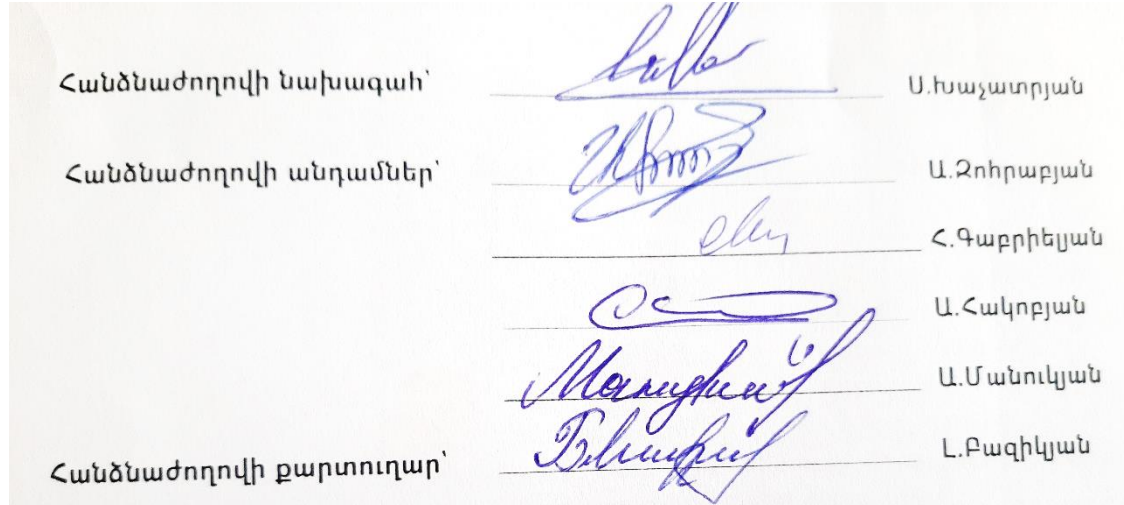 Հանձնաժողովի նախագահ՝ Ս.Խաչատրյան
Հանձնաժողովի անդամներ՝ Ա.Զոհրաբյան
Հ.Գաբրիելյան
Ա.Հակոբյան
Ա.Մանուկյան
Հանձնաժողովի քարտուղար՝ Լ.Բազիկյան